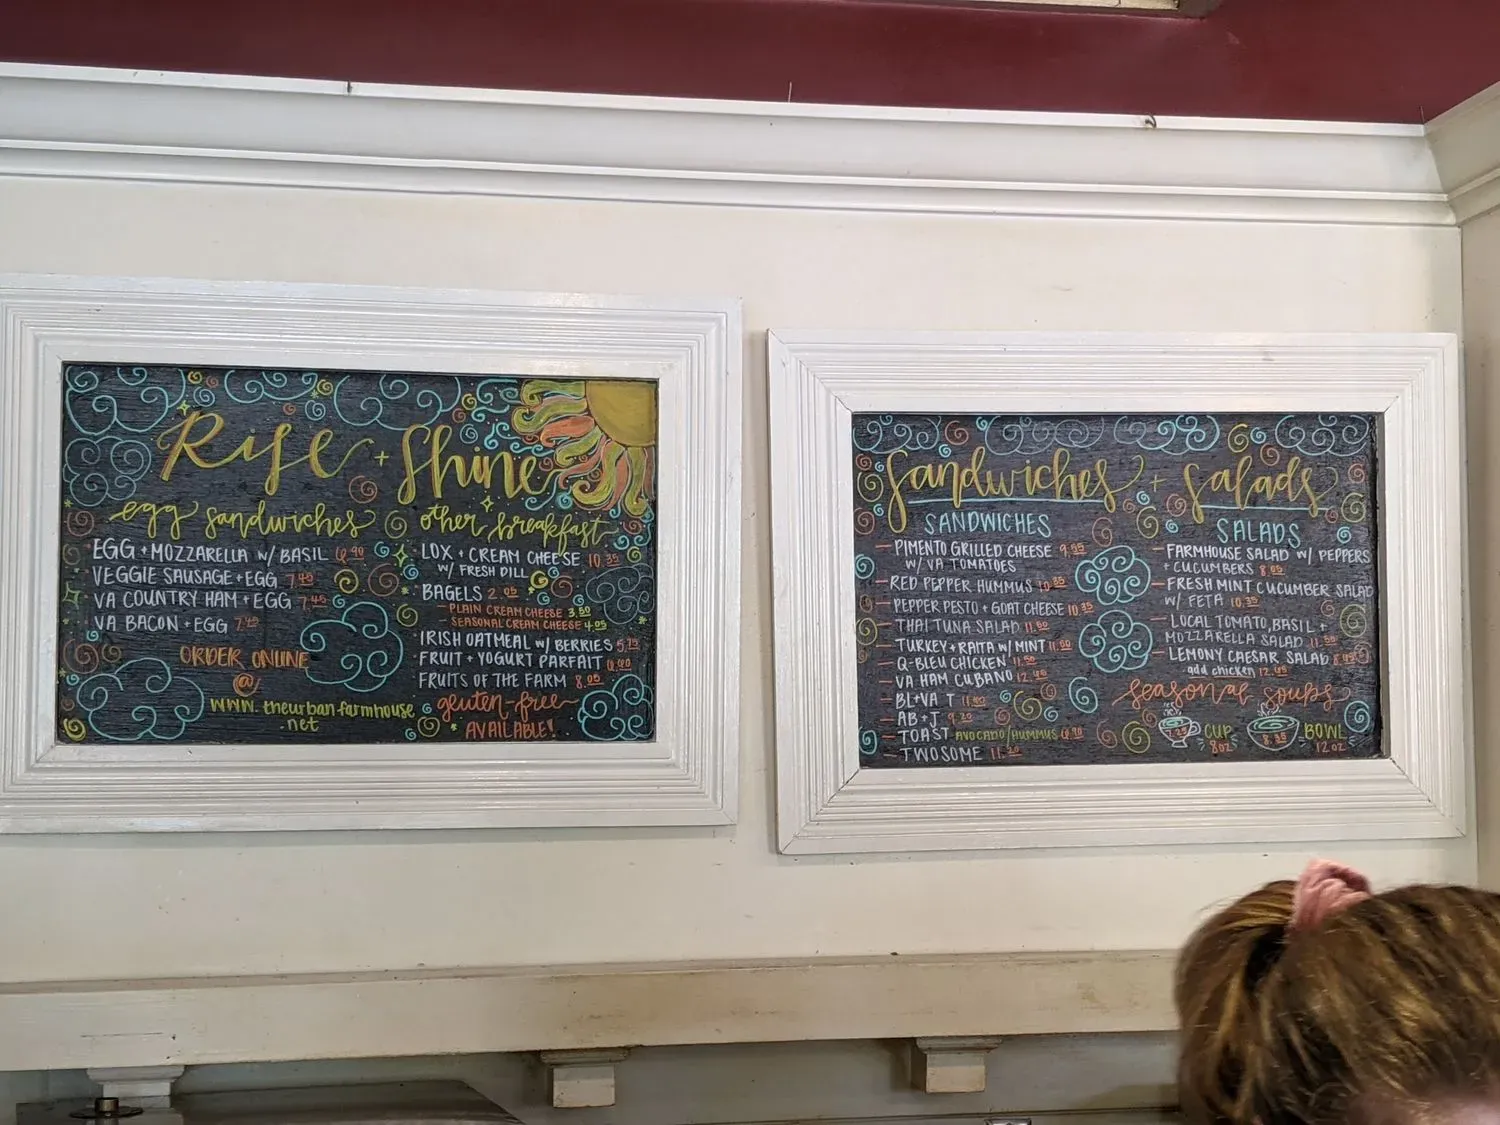 Rise + Shine
egg sandwiches
EGG + MOZZARELLA W/ BASIL 6.90
VEGGIE SAUSAGE + EGG 7.45
VA COUNTRY HAM + EGG 7.45
VA BACON + EGG 7.45
ORDER ONLINE
@
www.theurbanfarmhouse
.net
other breakfast
LOX + CREAM CHEESE 10.35
W/ FRESH DILL
BAGELS 2.05
- PLAIN CREAM CHEESE 3.50
- SEASONAL CREAM CHEESE 4.05
IRISH OATMEAL W/ BERRIES 5.75
FRUIT + YOGURT PARFAIT 6.90
FRUITS OF THE FARM 8.05
gluten-free
AVAILABLE!
Sandwiches + Salads
SANDWICHES
- PIMENTO GRILLED CHEESE 9.55
W/ VA TOMATOES
- RED PEPPER HUMMUS 10.35
- PEPPER PESTO + GOAT CHEESE 10.35
- THAI TUNA SALAD 11.50
- TURKEY + RAITA W/ MINT 11.50
- Q-BLEU CHICKEN 11.50
- VA HAM CUBANO 12.45
- BL+VA T
- AB + J 9.20
- TOAST AVOCADO/HUMMUS 6.90
- TWOSOME 11.20
SALADS
- FARMHOUSE SALAD W/ PEPPERS
+ CUCUMBERS 8.05
- FRESH MINT CUCUMBER SALAD
W/ FETA 10.35
- LOCAL TOMATO, BASIL +
MOZZARELLA SALAD 11.50
- LEMONY CAESAR SALAD
add chicken 12.65
seasonal soups
7.25 CUP 8.35 BOWL
8oz 12oz